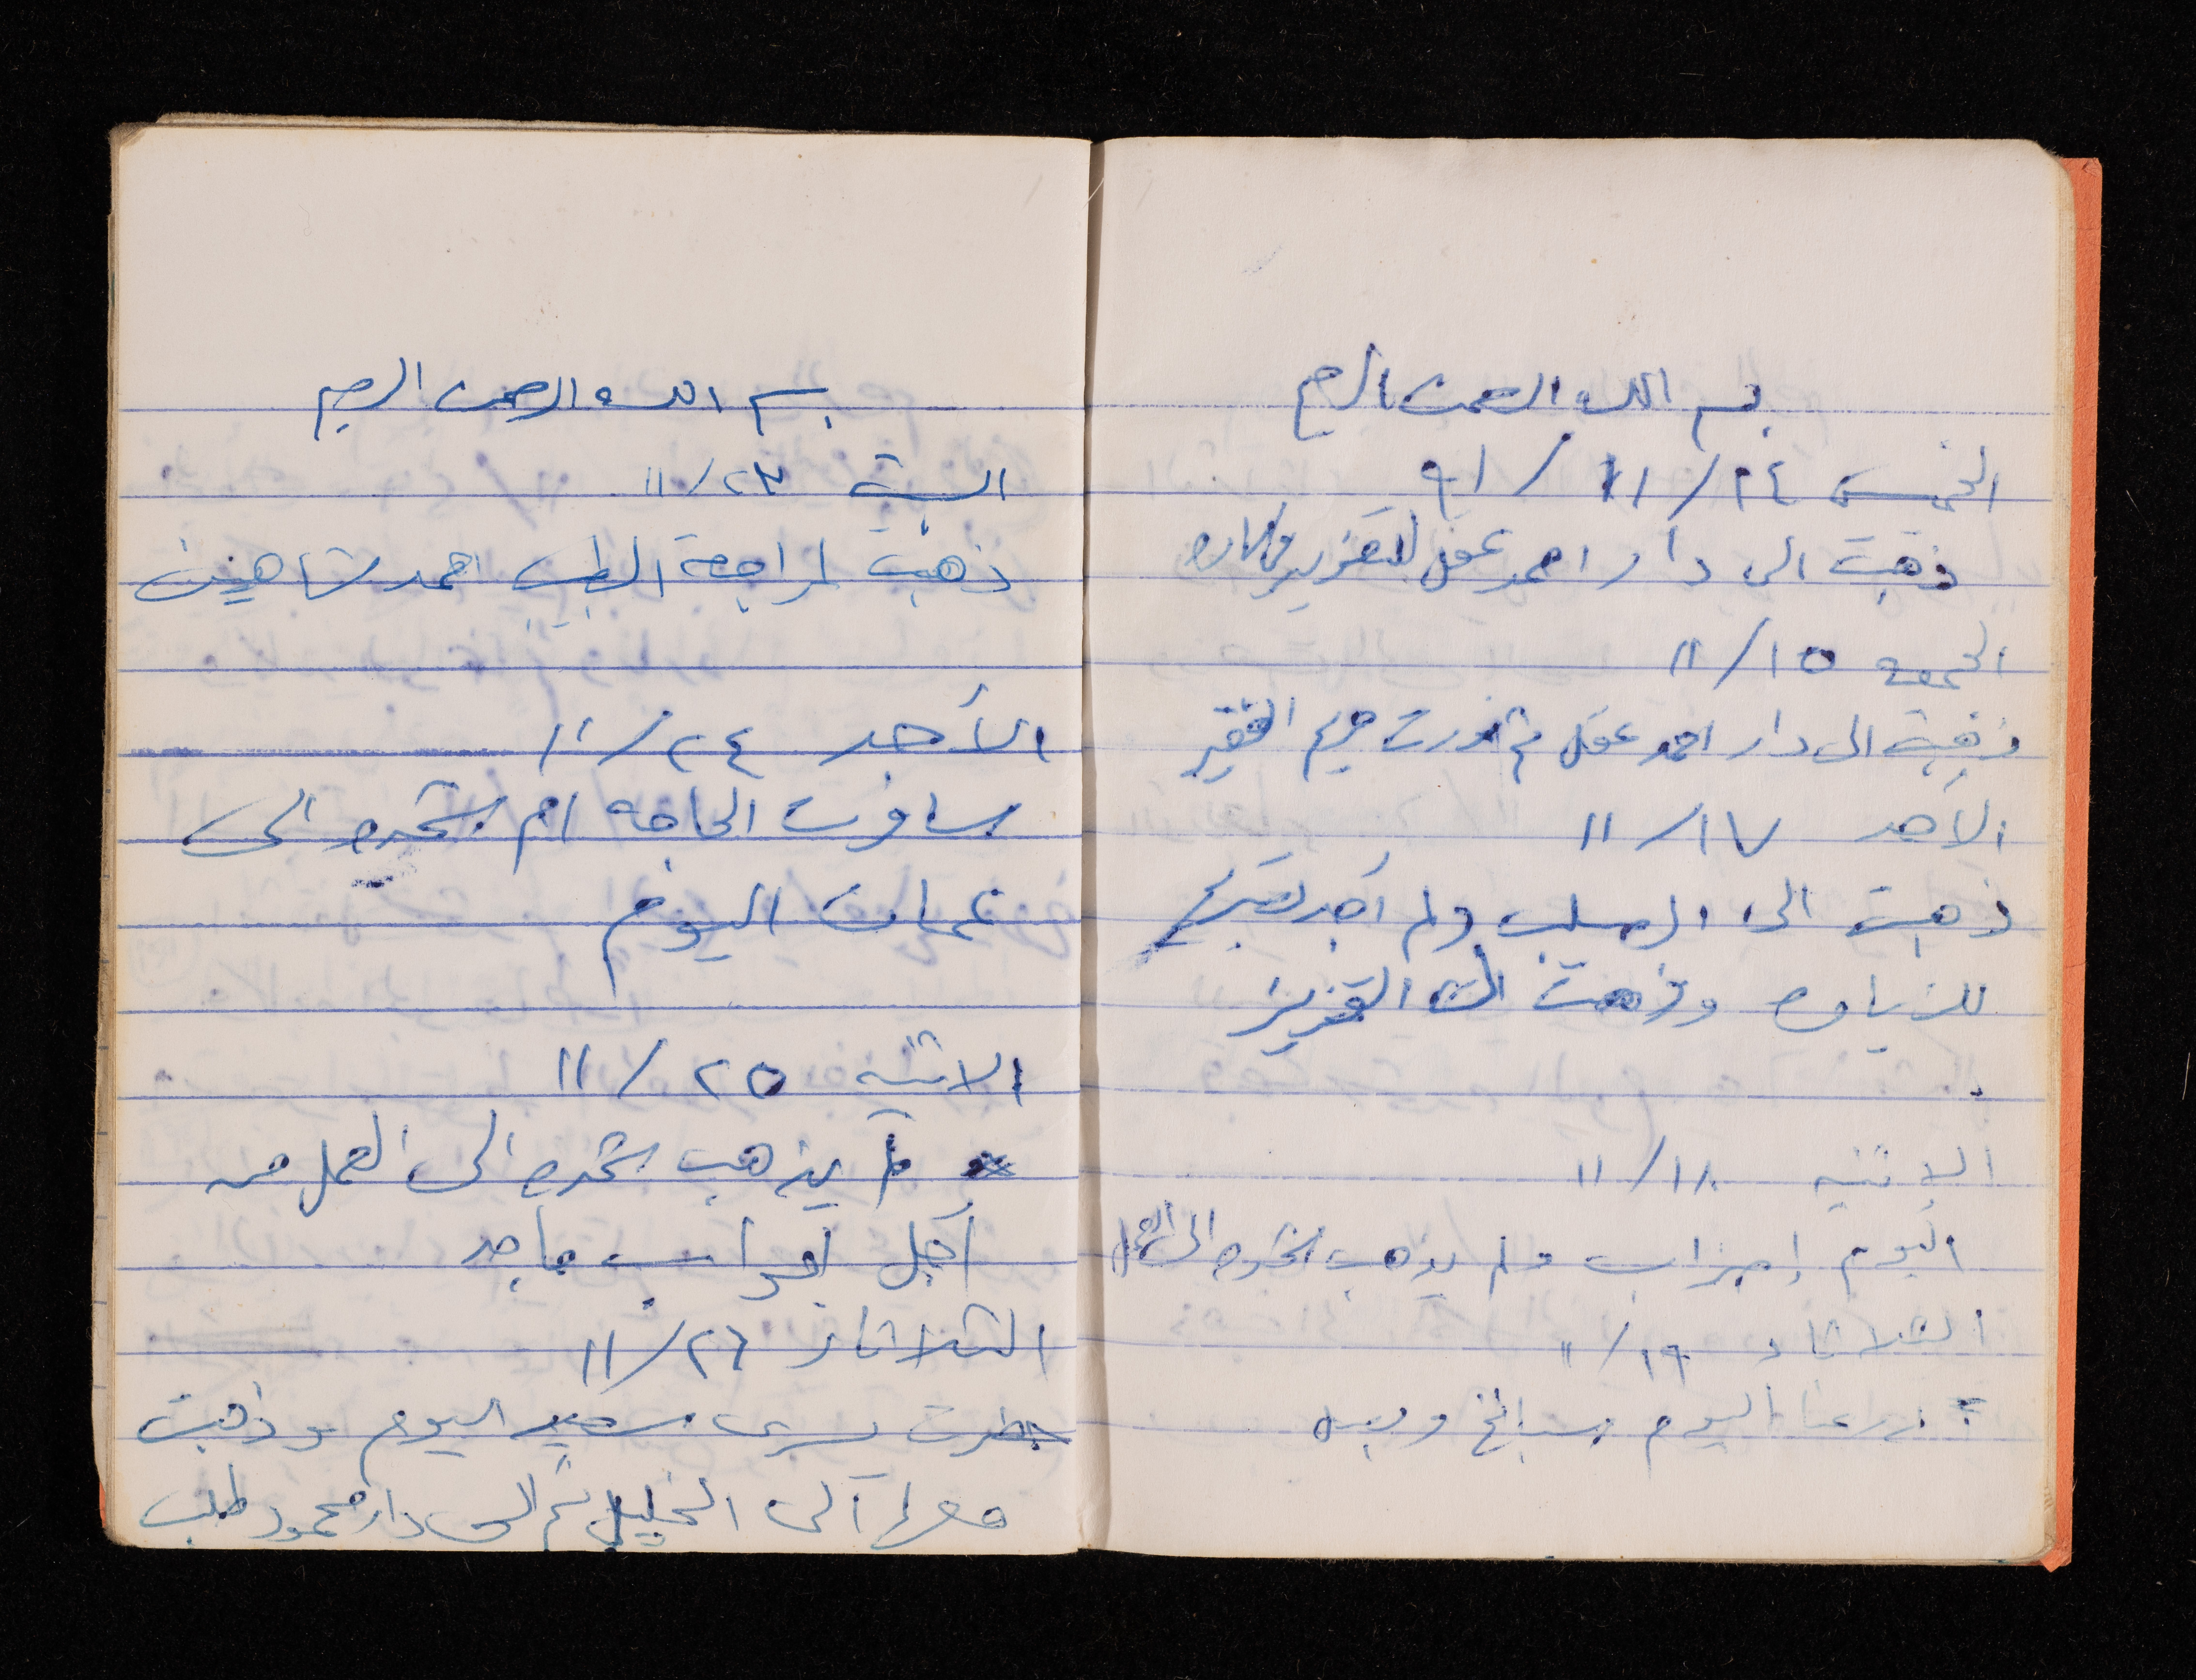 بسم الله الرحمن الرحيم
الخميس ١٤/ ١١/ ٩١
ذهبت الى دار احمد عقل للتعزير
الجمعه ١٥/ ١١
ذهبت الى دار احمد عقل ثم زرت مريم الفقير
الأحد ١٧/ ١١
ذهبت الى الصليب ولم أجد تصريح
للزياره وذهبت الى التعزيز
الاثنين ١٨/ ١١
اليوم إضراب ولم يذهب شحده الى العمل
الثلاثاء ١٩/ ١١
زرعنا اليوم سبانخ وبصل
بسم الله الرحمن الرحيم
السبت ٢٣/ ١١
ذهبت لمراجعة الطبيب احمد شاهين
الأحد ٢٤/ ١١
سافرت الحاجه ام شحده الى
عمان اليوم
الاثنين ٢٥/ ١١
لم يذهب شحده الى العمل من
أجل ماجد
الثلاثاء ٢٦/ ١١
حضرت يسرى سعيد اليوم وذهبت
معها الى الخليل ثم الى دار محمود طلب